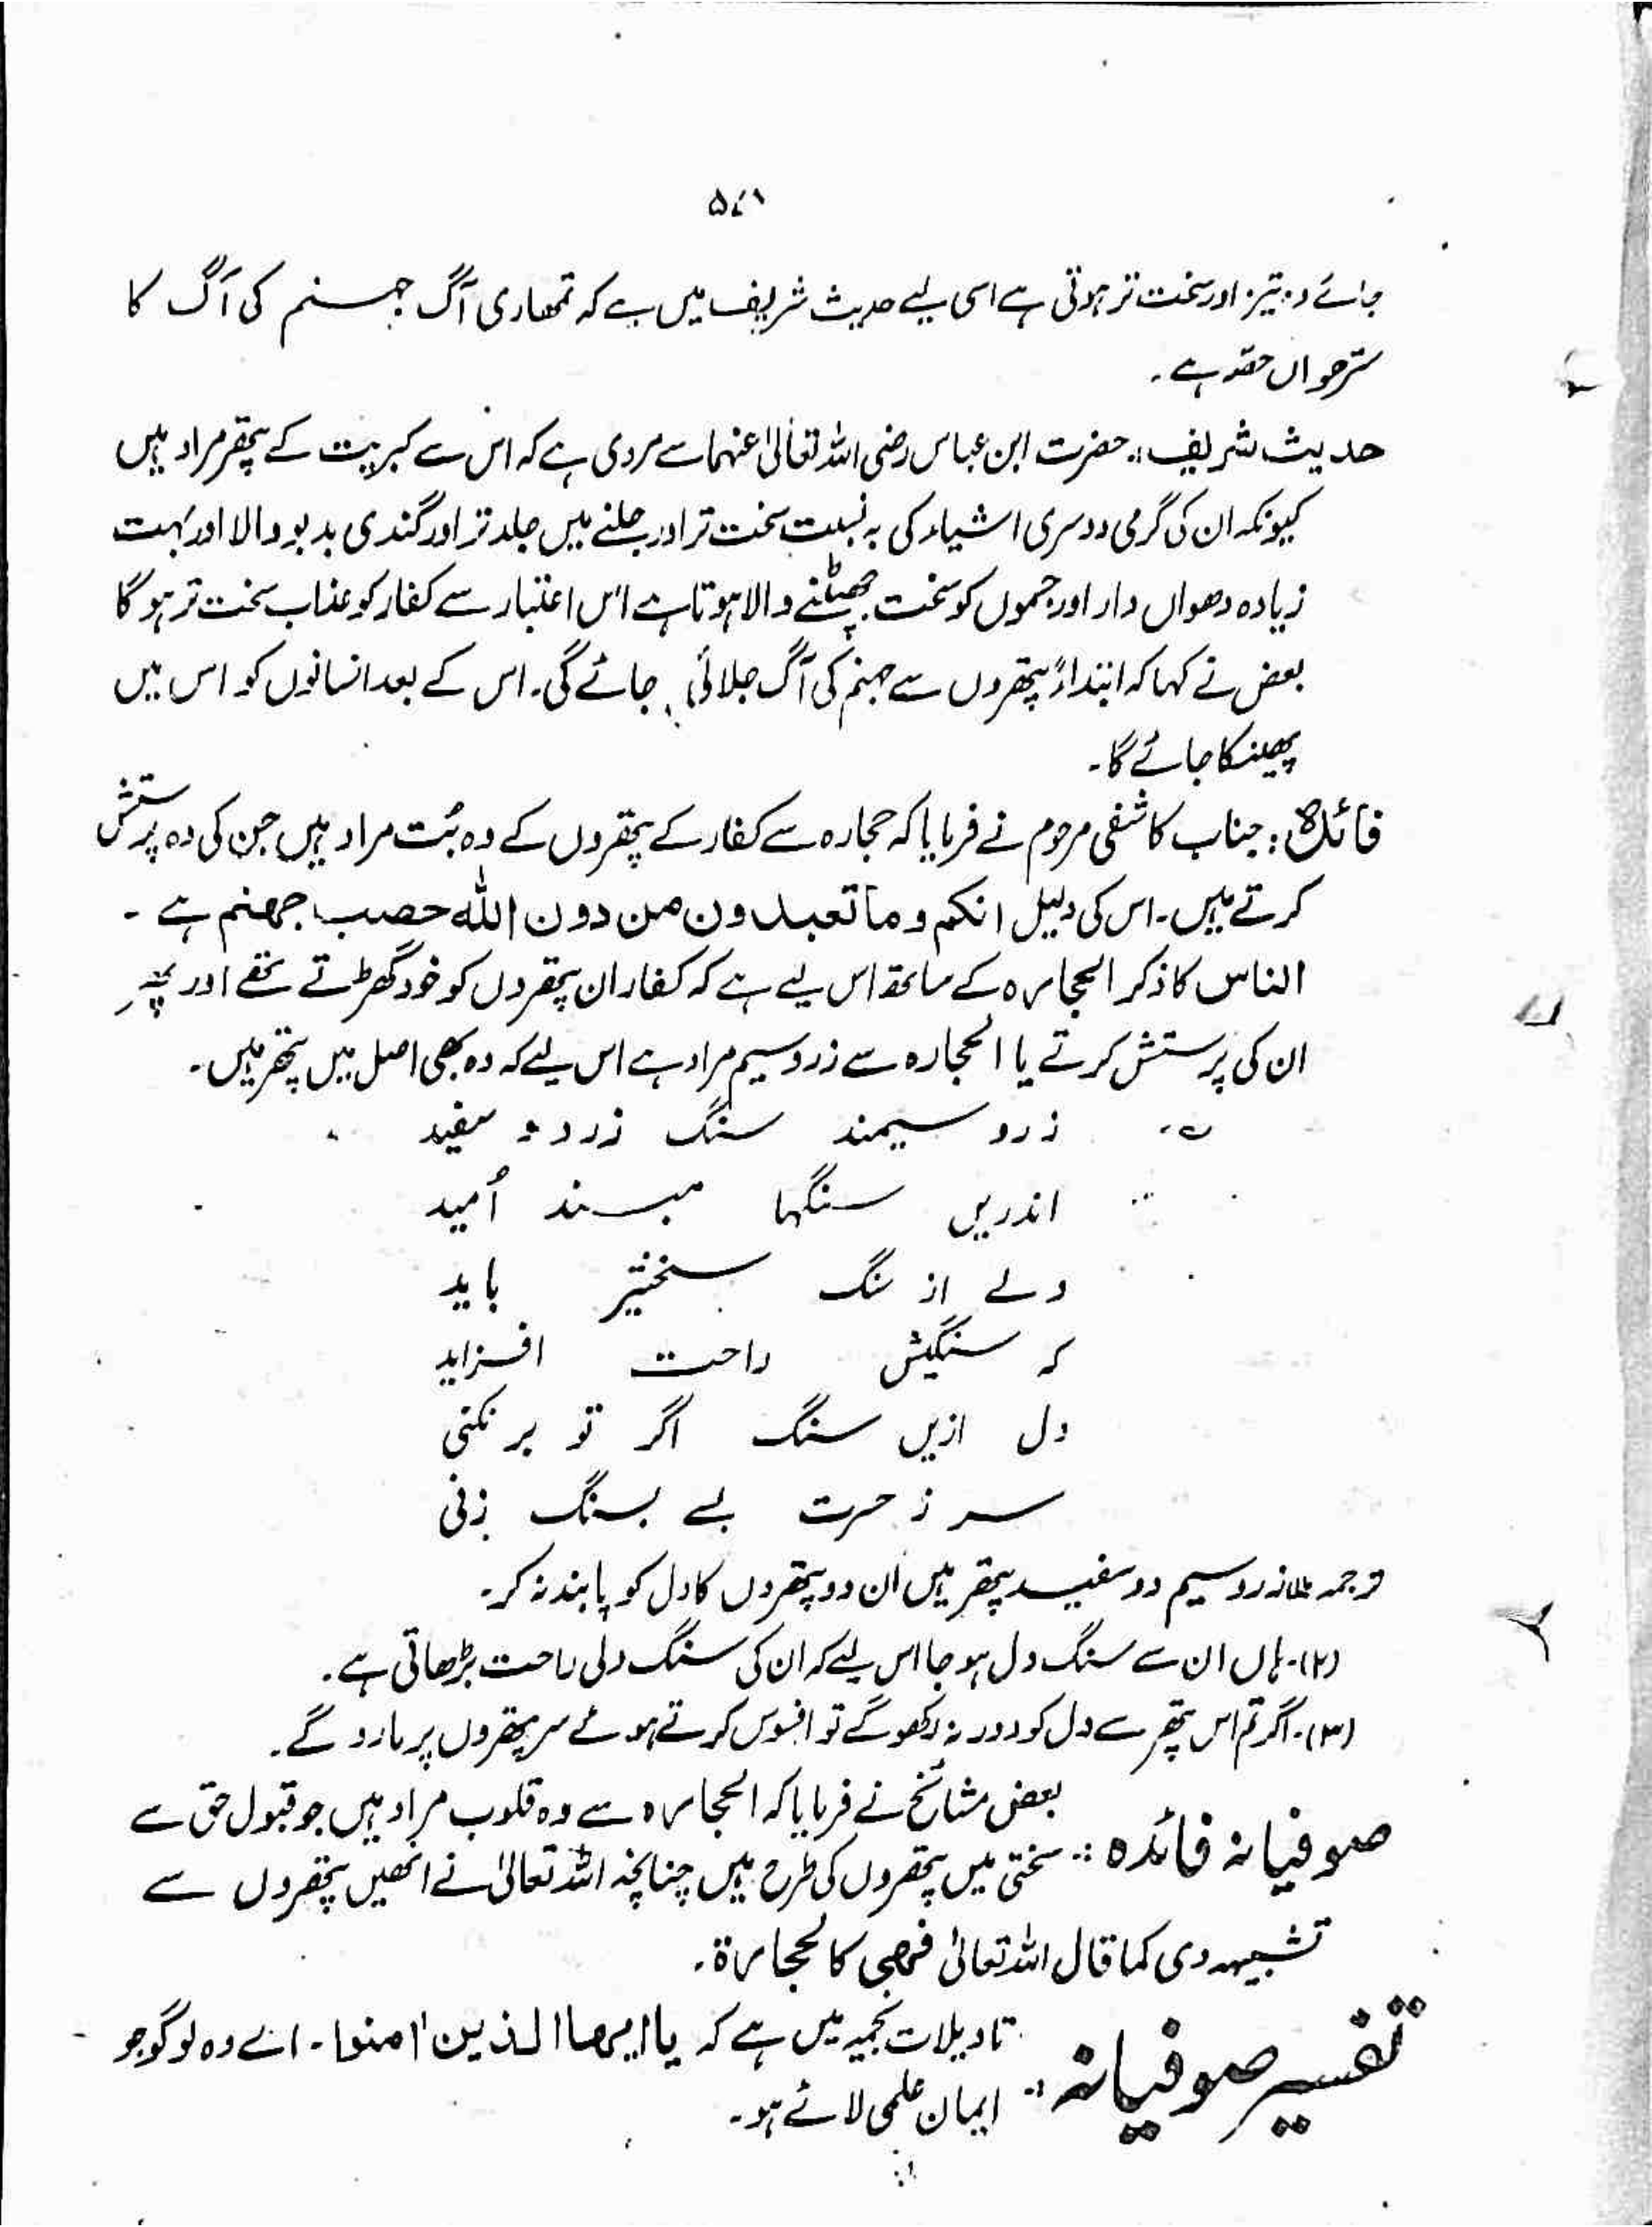 ۵۷۱
جائے وہ تیز اور سخت تر ہوتی ہے اسی لیے حدیث شریف میں ہے کہ تمھاری آگ جہنم کی آگ کا
سترھواں حصّہ ہے۔
حدیث شریف :۔ حضرت ابن عباس رضی اللہ تعالیٰ عنہما سے مروی ہے کہ اس سے کبریت کے پتھر مراد ہیں
کیونکہ ان کی گرمی دوسری اشیاء کی بہ نسبت سخت تر اور جلنے میں جلد تر اور گندی بدبو والا اور بہت
زیادہ دھواں دار اور جسموں کو سخت چمٹنے والا ہوتا ہے اس اعتبار سے کفار کو عذاب سخت تر ہو گا
بعض نے کہا کہ ابتداءً پتھروں سے جہنم کی آگ جلائی جائے گی۔ اس کے بعد انسانوں کو اس میں
پھینکا جائے گا۔
فائدہ : جناب کاشفی مرحوم نے فرمایا کہ حجارہ سے کفار کے پتھروں کے وہ بُت مراد ہیں جن کی وہ پرستش
کرتے ہیں۔ اس کی دلیل انکم وما تعبدون من دون اللہ حصب جھنم ہے ۔
الناس کا ذکر الحجارہ کے ساتھ اس لیے ہے کہ کفار ان پتھروں کو خود گھڑتے تھے اور پھر
ان کی پرستش کرتے یا الحجارہ سے زر وسیم مراد ہے اس لیے کہ وہ بھی اصل میں پتھر ہیں۔
؎ زر و سیمند سنگ زرد و سفید
اندریں سنگہا مبند اُمید
دلے از سنگ سختتر باید
کہ سنگیش راحت افزاید
دل ازیں سنگ اگر تو بر نکنی
سر ز حسرت بسے بسنگ زنی
ترجمہ ۱؎ زر وسیم دو سفید پتھر ہیں ان دو پتھروں کا دل کو پابند نہ کر۔
(۲)۔ ہاں ان سے سنگ دل ہو جا اس لیے کہ ان کی سنگ دلی راحت بڑھاتی ہے۔
(۳)۔ اگر تم اس پتھر سے دل کو دور نہ رکھو گے تو افسوس کرتے ہوئے سر پتھروں پر مارو گے۔
صوفیانہ فائدہ :۔ بعض مشائخ نے فرمایا کہ الحجارہ سے وہ قلوب مراد ہیں جو قبول حق سے
سختی میں پتھروں کی طرح ہیں چنانچہ اللہ تعالیٰ نے انھیں پتھروں سے
تشبیہہ دی کما قال اللہ تعالیٰ فھی کالحجارۃ۔
تفسیر صوفیانہ :۔ تاویلات نجمیہ میں ہے کہ یا ایھا الذین اٰمنوا۔ اے وہ لوگو جو
ایمان علمی لائے ہو۔